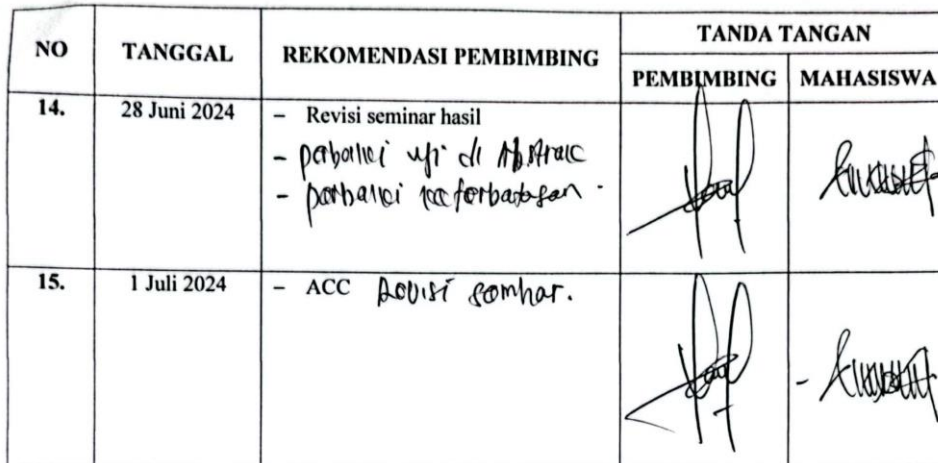 NO TANGGAL REKOMENDASI PEMBIMBING TANDA TANGAN
PEMBIMBING MAHASISWA
14. 28 Juni 2024 – Revisi seminar hasil
- perbaiki uji di Abstrak
- perbaiki keterbatasan
15. 1 Juli 2024 – ACC Revisi semhas.